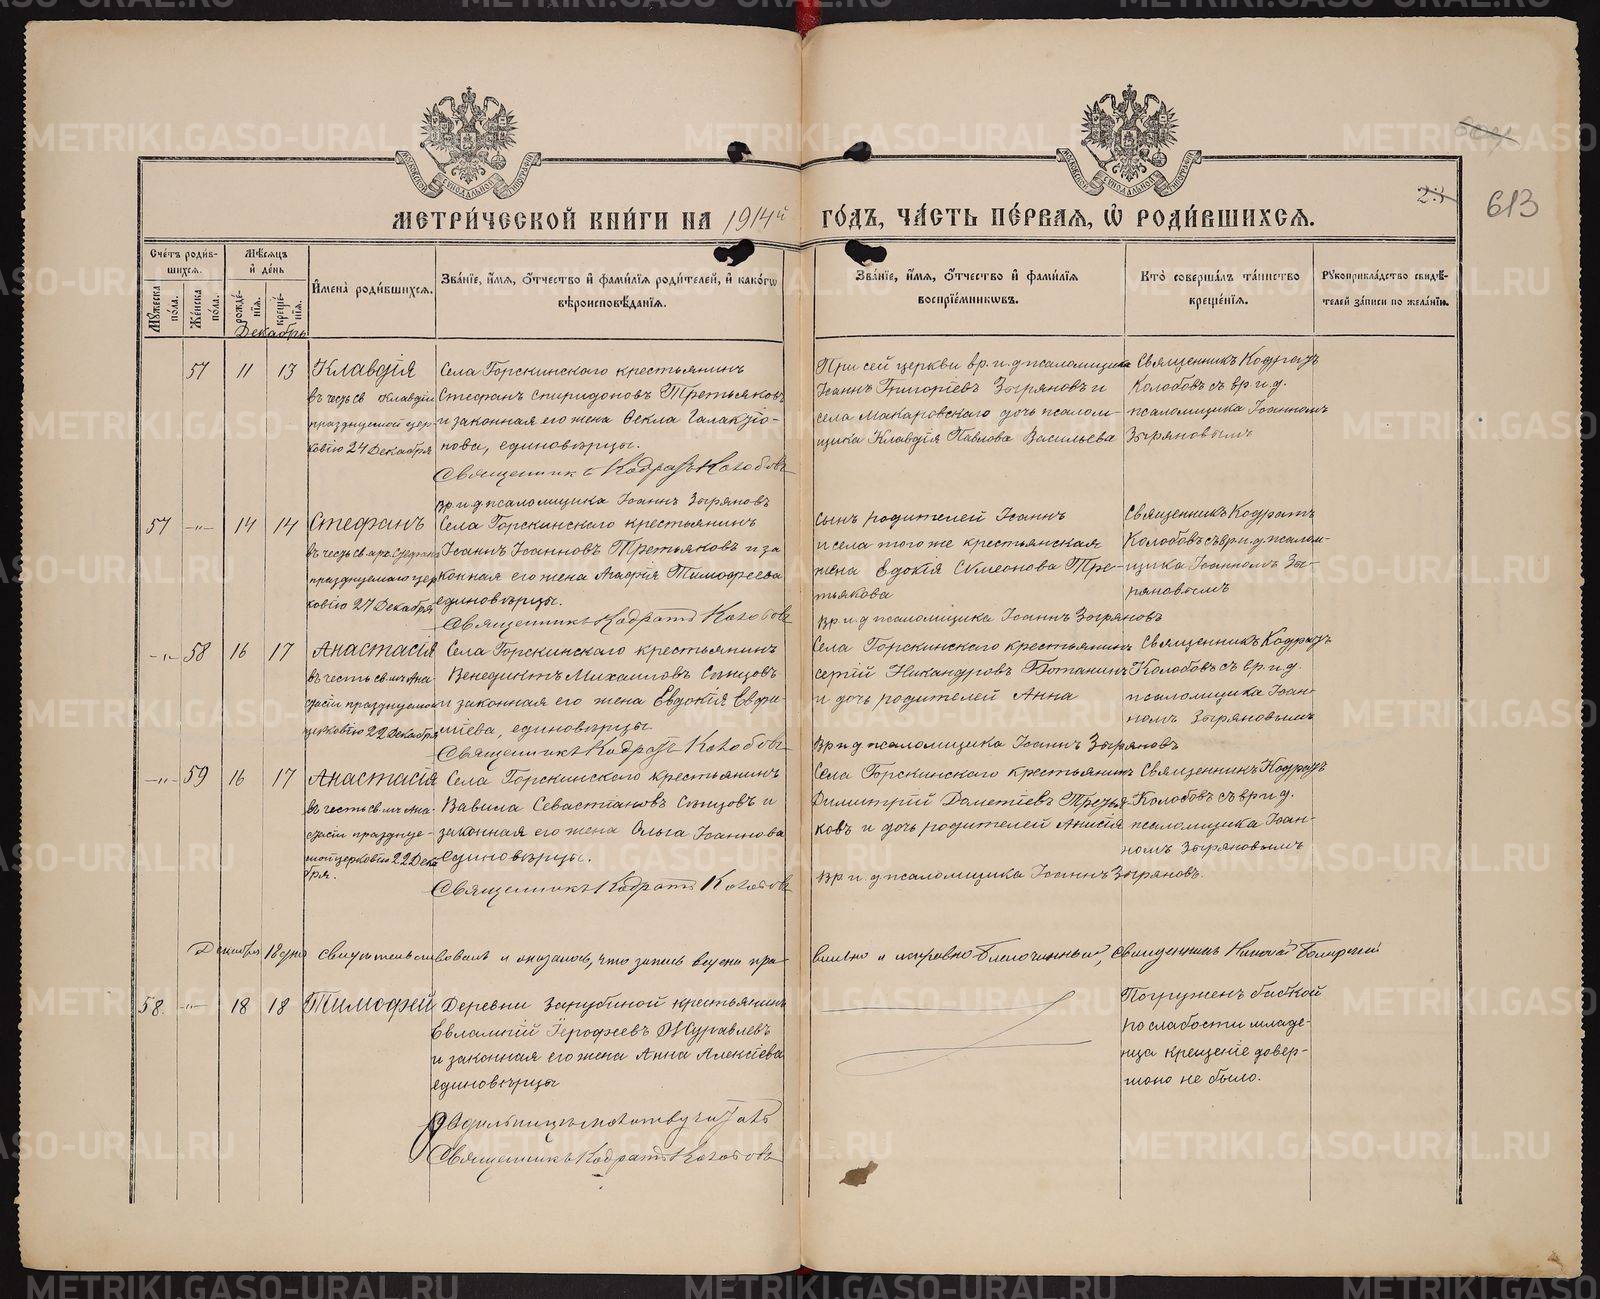 613
МЕТРИ́ЧЕСКОЙ КНИ́ГИ НА 1914й ГО́ДЪ, ЧА́СТЬ ПЕ́РВАЯ, Ѡ҆ РОДИ́ВШИХСЯ.
Сче́тъ роди́вшихся.
Му́жеска по́ла.
Же́нска по́ла.
Мѣ́сяцъ и҆ де́нь
рожде́нїя.
креще́нїя.
Декабрь
И҆мена̀ роди́вшихся.
Зва́нїе, и҆́мя, ѻ҆́тчество и҆ фами́лїя роди́телей, и҆ како́гѡ вѣроисповѣ́данїя.
Зва́нїе, и҆́мя, ѻ҆́тчество и҆ фами́лїя воспрїе́мниковъ.
Кто̀ соверша́лъ та́инство креще́нїя.
Рꙋкоприкла́дство свидѣ́телей за́писи по жела́нїю.
57 11 13
Клавдія
въ честь св Клавдіи
празднуемой цер-
ковію 24 Декабря
Села Горскинского крестьянинъ
Стефанъ Спиридоновъ Третьяковъ
и законная его жена Ѳекла Галактіо-
нова, единовѣрцы.
Священникъ Кодратъ Колобовъ
При сей церкви вр. и. д псаломщика
Іоаннъ Григоріевъ Зыряновъ и
села Макаровскаго дочь псалом-
щика Клавдія Павлова Васильева
Священникъ Кодратъ
Колобовъ съ вр и. д.
псаломщика Іоанномъ
Зыряновымъ
вр. и д псаломщика Іоаннъ Зыряновъ
57 -"- 14 14
Стефанъ
въ честь св. арх. Стефана
празднуемаго цер
ковію 27 Декабря
Села Горскинского крестьянинъ
Іоаннъ Іоанновъ Третьяковъ и за
конная его жена Агафія Тимофеева
единовѣрцы.
Священникъ Кодратъ Колобовъ
сынъ родителей Іоаннъ
и села того же крестьянская
жена Евдокія Симеонова Тре-
тьякова
вр и. д псаломщика Іоаннъ Зыряновъ
Священникъ Кодратъ
Колобовъ съ вр. и. д. псалом-
щика Іоанномъ Зы-
ряновымъ
-"- 58 16 17
Анастасія
въ честь св. мч Ана-
стасіи празднуемой
церковію 22 Декабря
Села Горскинского крестьянинъ
Венедиктъ Михаиловъ Сынцовъ
и законная его жена Евдокія Евфи-
міева, единовѣрцы
Священникъ Кодратъ Колобовъ
Села Горскинского крестьянинъ
Сергій Никандровъ Потанинъ
и дочь родителей Анна
вр и д псаломщика Іоаннъ Зыряновъ
Священникъ Кодратъ
Колобовъ съ вр. и. д.
псаломщика Іоан-
номъ Зыряновымъ
-"- 59 16 17
Анастасія
въ честь св. мч Ана-
стасіи праздпуе-
мой церковію 22 Дека
бря.
Села Горскинского крестьянинъ
Вавила Севастіановъ Сынцовъ и
законная его жена Ольга Іоаннова
единовѣрцы.
Священникъ Кодратъ Колобовъ
Села Горскинского крестьянинъ
Димитрій Дометіевъ Третья-
ковъ и дочь родителей Анисія
вр и. д псаломщика Іоаннъ Зыряновъ.
Священникъ Кодратъ
Колобовъ съ вр и д.
псаломщика Іоан-
номъ Зыряновымъ
Декабря 18 дня свидѣтельствовалъ и оказалось, что запись ведена пра-
вильно и исправно Благочинный, Священникъ Николай
58. -"- 18 18
Тимофей
Деревни Зарубиной крестьянинъ
Евлампій Іерофеевъ Журавлевъ
и законная его жена Анна Алексіева
единовѣрцы
Священникъ Кодратъ Колобовъ
Погруженъ бабкой
по слабости младе-
нца крещеніе довер-
шоно не было.